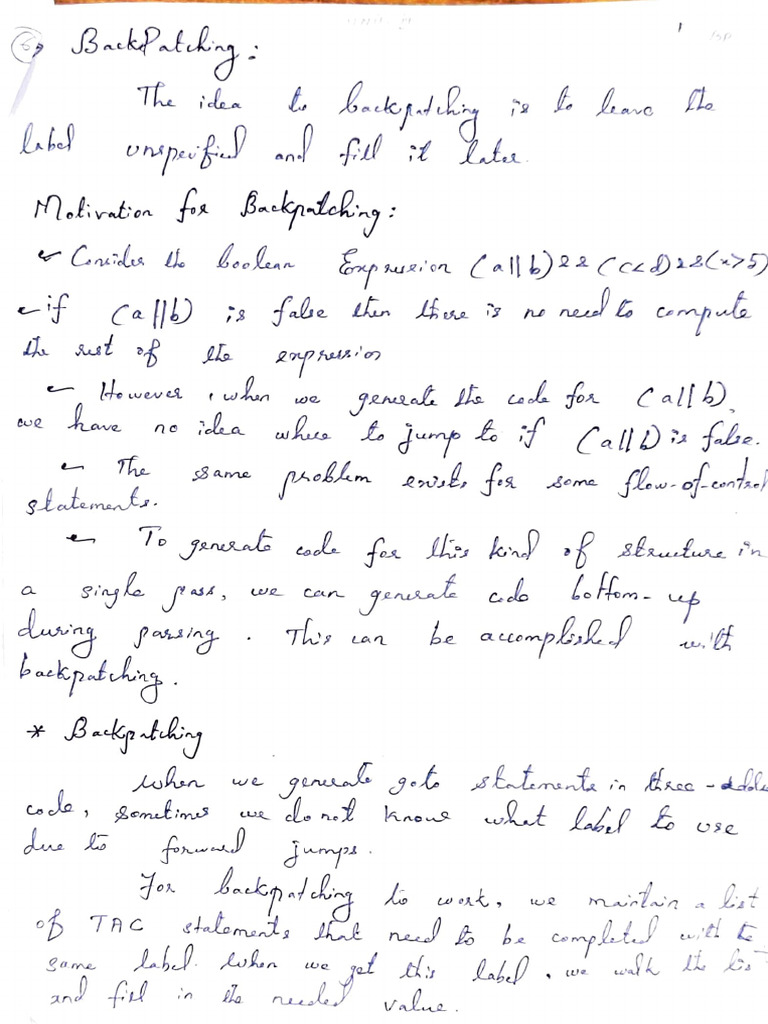 6) BackPatching :
The idea to backpatching is to leave the
label unspecified and fill it later.
Motivation for Backpatching :
Consider the boolean Expression (a||b)&&(c<d)&&(x>5)
if (a||b) is false then there is no need to compute
the rest of the expression
However, when we generate the code for (a||b),
we have no idea where to jump to if (a||b) is false.
The same problem exists for some flow-of-control
statements.
To generate code for this kind of structure in
a single pass, we can generate code bottom-up
during parsing. This can be accomplished with
backpatching.
* Backpatching
When we generate goto statements in three-
code, sometimes we do not know what label to use
due to forward jumps.
For backpatching to work, we maintain a list
of TAC statements that need to be completed with the
same label. When we get this label, we walk the
and fill in the needed value.